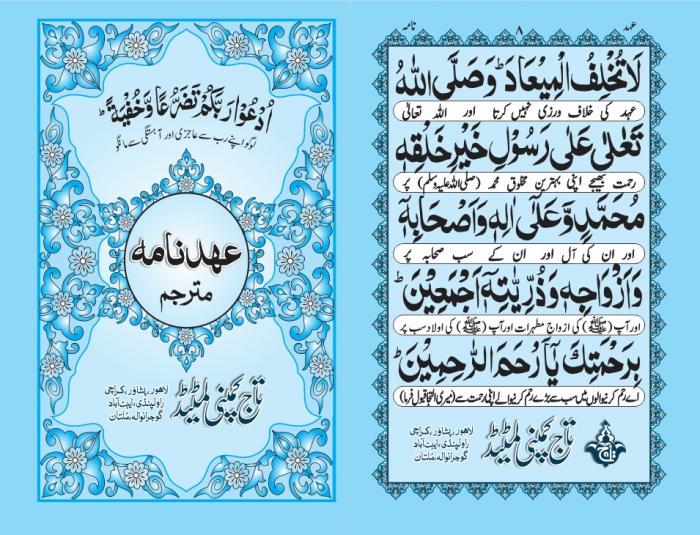 اُدْعُوْا رَبَّكُمْ تَضَرُّعًا وَّخُفْيَةً ؕ
لوگو اپنے رب سے عاجزی اور آہستگی سے مانگو
عہد نامہ
مترجم
تاج کمپنی لمیٹڈ
لاہور، پشاور، کراچی
راولپنڈی، ایبٹ آباد
گوجرانوالہ، ملتان
عہد ۸ نامہ
لَا تُخْلِفُ الْمِيْعَادَ ؕ وَصَلَّى اللّٰهُ
عہد کی خلاف ورزی نہیں کرتا اور اللہ تعالیٰ
تَعَالٰى عَلٰى رَسُوْلِ خَيْرِ خَلْقِهٖ
رحمت بھیجے اپنی بہترین مخلوق محمد (صلی اللہ علیہ وسلم) پر
مُحَمَّدٍ وَّعَلٰٓى اٰلِهٖ وَاَصْحَابِهٖ
اور ان کی آل اور ان کے سب صحابہ پر
وَاَزْوَاجِهٖ وَذُرِّيَّتِهٖٓ اَجْمَعِيْنَ ؕ
اور آپ (ﷺ) کی ازواج مطہرات اور آپ (ﷺ) کی اولاد سب پر
بِرَحْمَتِكَ يَآ اَرْحَمَ الرّٰحِمِيْنَ ؕ
اے رحم کرنیوالوں میں سب سے بڑے رحم کرنیوالے اپنی رحمت سے (میری التجا قبول فرما)
تاج کمپنی لمیٹڈ
لاہور، پشاور، کراچی
راولپنڈی، ایبٹ آباد
گوجرانوالہ، ملتان